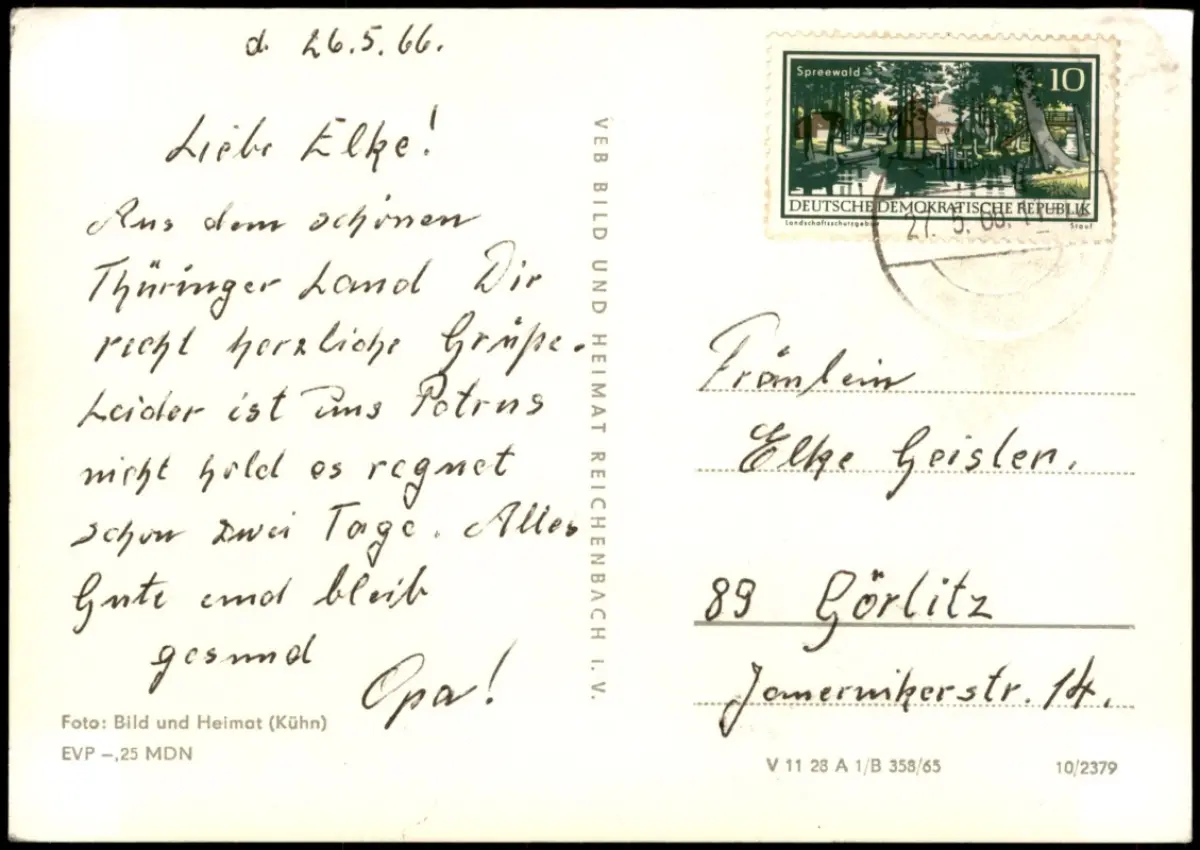 d. 26.5.66.
Liebe Elke!
Aus dem schönen
Thüringer Land Dir
recht herzliche Grüße.
Leider ist uns Petrus
nicht hold es regnet
schon zwei Tage. Alles
Gute und bleib
gesund
Opa!
Foto: Bild und Heimat (Kühn)
EVP –,25 MDN
VEB BILD UND HEIMAT REICHENBACH I. V.
Spreewald
10
DEUTSCHE DEMOKRATISCHE REPUBLIK
Stauf
27. 5. 66.
Fräulein
Elke Geisler.
89 Görlitz
Jauernikerstr. 14.
V 11 28 A 1/B 358/65
10/2379